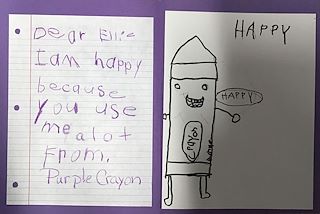 Dear Ellie
I am happy
because
you use
me a lot
From,
Purple Crayon
HAPPY
HAPPY
Crayon